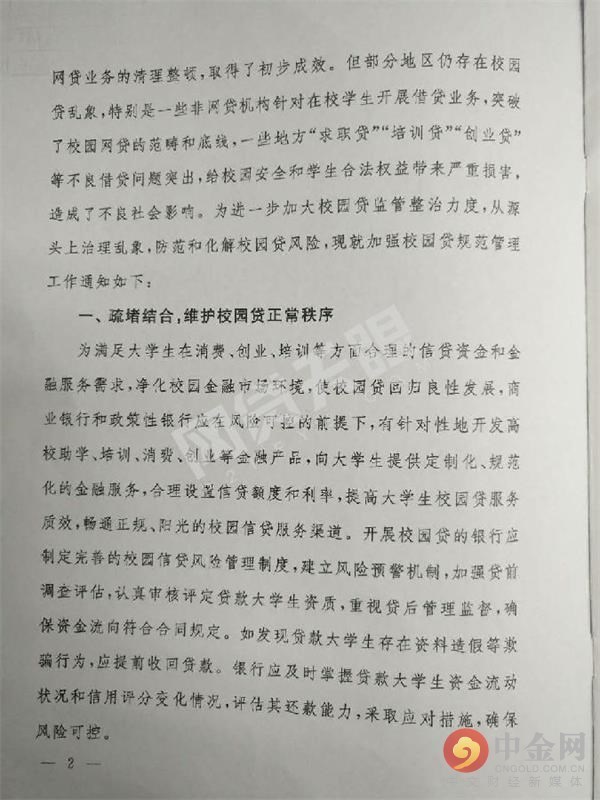 网贷业务的清理整顿，取得了初步成效。但部分地区仍存在校园
贷乱象，特别是一些非网贷机构针对在校学生开展借贷业务，突破
了校园网贷的范畴和底线，一些地方“求职贷”“培训贷”“创业贷”
等不良借贷问题突出，给校园安全和学生合法权益带来严重损害，
造成了不良社会影响。为进一步加大校园贷监管整治力度，从源
头上治理乱象，防范和化解校园贷风险，现就加强校园贷规范管理
工作通知如下：
一、疏堵结合，维护校园贷正常秩序
为满足大学生在消费、创业、培训等方面合理的信贷资金和金
融服务需求，净化校园金融市场环境，使校园贷回归良性发展，商
业银行和政策性银行应在风险可控的前提下，有针对性地开发高
校助学、培训、消费、创业等金融产品，向大学生提供定制化、规范
化的金融服务，合理设置信贷额度和利率，提高大学生校园贷服务
质效，畅通正规、阳光的校园信贷服务渠道。开展校园贷的银行应
制定完善的校园信贷风险管理制度，建立风险预警机制，加强贷前
调查评估，认真审核评定贷款大学生资质，重视贷后管理监督，确
保资金流向符合合同规定。如发现贷款大学生存在资料造假等欺
骗行为，应提前收回贷款。银行应及时掌握贷款大学生资金流动
状况和信用评分变化情况，评估其还款能力，采取应对措施，确保
风险可控。
— 2 —
中金网
CNGOLD.COM.CN